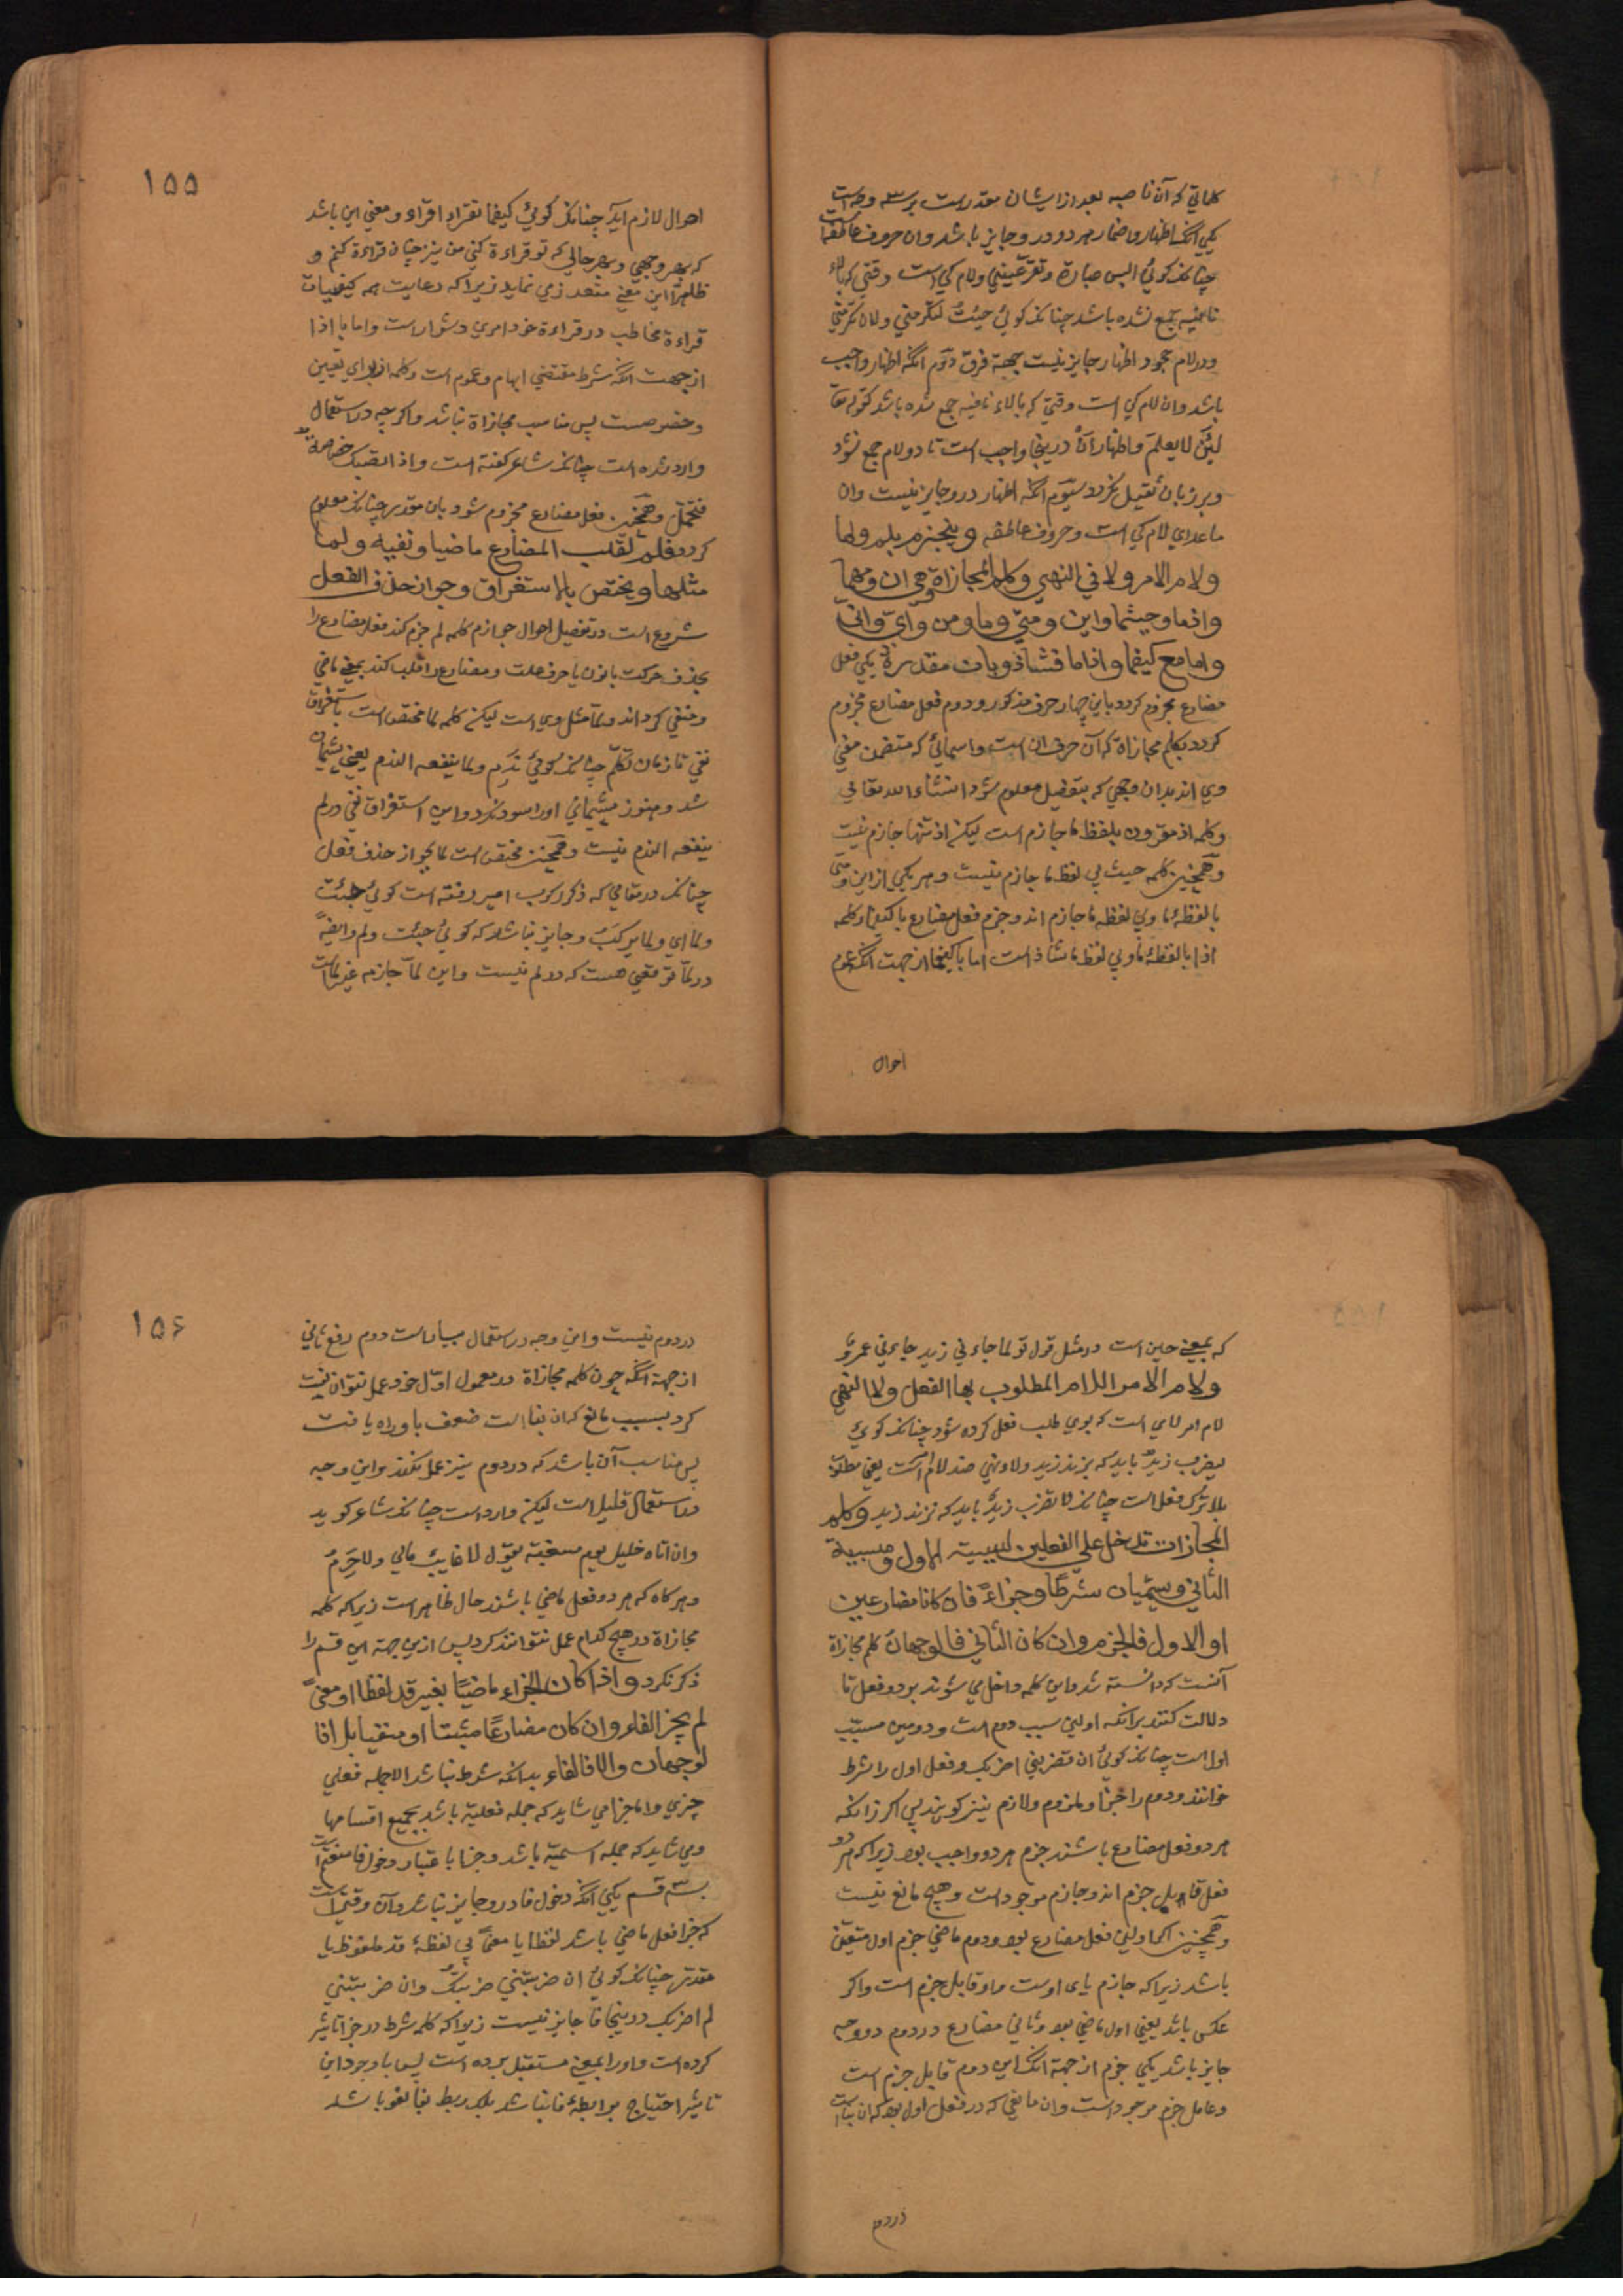 کلماتی که آن ناصبه بعد از ایشان مقدرست بر سه وجه است
یکی آنکه اظهار و اضمار هر دو درو جایز باشد وان حروف عاطفه است
چنانک کوئی الیس عبارة و تقر عینی ولام کی است وقتی که بالاء
نافیه جمع نشده باشد چنانک کوئی جئتک لتکرمنی ولان تکرمنی
ودر لام جحود اظهار جایز نیست جهة فرق دوم آنکه اظهار واجب
باشد وان لام کی است وقتی که بالاء نافیه جمع شده باشد کقوله تعا
لئلا یعلم واظهار آن درینجا واجب است تا دو لام جمع نشود
وبر زبان ثقیل نکردد سیوم آنکه اظهار درو جایز نیست وان
ماعدای لام کی است وحروف عاطفه وینجزم بلم ولما
ولام الامر ولا فی النهی وکلم المجازاة وهی ان ومهما
واذما وحیثما واین ومتی وما ومن وای وانی
واما مع کیفما واذاما فشاذ وبان مقدرة یکی فعل
مضارع مجزوم کردد باین چهار حرف مذکور ودوم فعل مضارع مجزوم
کردد بکلم مجازاة که آن حرف ان است واسمائی که متضمن معنی
وی اند بدان وجهی که بتفصیل معلوم شود انشاء الله تعالی
وکلمه اذ مقرون بلفظ ما جازم است لیکن اذ تنها جازم نیست
وهمچنین کلمه حیث بی لفظ ما جازم نیست وهر یکی از این ومتی
بالفظه ما وبی لفظه ما جازم اند وجزم فعل مضارع با کیفما وکلمه
اذا بالفظه ما وبی لفظ ما شاذ است اما با کیفما از جهت آنکه عموم
احوال
۱۵۵
احوال لازم آید چنانک کوئی کیفما تقراء اقراء ومعنی این باشد
که بهر وجهی وبهر حالی که تو قراءة کنی من نیز چنان قراءة کنم و
ظاهرا این معنی متعذر می نماید زیرا که رعایت همه کیفیات
قراءة مخاطب در قراءة خود امری دشوارست واما با اذا
از جهت آنکه شرط مقتضی ابهام وعموم است وکلمه اذ برای تعیین
وخصوصست پس مناسب مجازاة نباشد واکر چه در استعمال
وارد شده است چنانک شاعر کفته است واذا تصبک خصاصة
فتحمل وهمچنین فعل مضارع مجزوم شود بان مقدر چنانک معلوم
کردد فلم لقلب المضارع ماضیا ونفیه ولما
مثلها ویختص بالاستغراق وجواز حذف الفعل
شروع است در تفصیل احوال جوازم کلمه لم جزم کند فعل مضارع را
بحذف حرکت یا نون یا حرف علت ومضارع را قلب کند بمعنی ماضی
ومنفی کرداند ولما مثل وی است لیکن کلمه لما مختص است باستغراق
نفی تا زمان تکلم چنانک کوئی ندم ولما ینفعه الندم یعنی پشیمان
شد وهنوز پشیمانی او را سود نکرد واین استغراق نفی در لم
ینفعه الندم نیست وهمچنین مختص است لما بجواز حذف فعل
چنانک در مقامی که ذکر رکوب امیر رفته است کوئی جئت
ولما ای ولما یرکب وجایز نباشد که کوئی جئت ولم وایضا
در لما توقعی هست که در لم نیست واین لما جازمه غیر لما است
که بمعنی حین است در مثل قول تو لما جاءنی زید جاءنی عمرو
ولام الامر اللام المطلوب بها الفعل ولا النهی
لام امر لامی است که بوی طلب فعل کرده شود چنانک کوئی
لیضرب زید باید که بزند زید ولا ونهی ضد لام امرست یعنی مطلوب
بلا ترک فعل است چنانک لا یضرب زید باید که نزند زید وکلم
المجازات تدخل علی الفعلین لسببیة الاول ومسببیة
الثانی ویسمیان شرطا وجزاء فان کانا مضارعین
او الاول فالجزم وان کان الثانی فالوجهان کلم مجازاة
آنست که دانسته شد واین کلمه داخل می شوند بر دو فعل تا
دلالت کنند برآنکه اولین سبب دوم است ودومین مسبب
اول است چنانک کوئی ان تضربنی اضربک وفعل اول را شرط
خوانند ودوم را جزا وملزوم ولازم نیز کویند پس اکر زانکه
هر دو فعل مضارع باشند جزم هر دو واجب بود زیرا که هر دو
فعل قابل جزم اند وجازم موجودست وهیچ مانع نیست
وهمچنین اکر اولین فعل مضارع بود ودوم ماضی جزم اول متعین
باشد زیرا که جازم یای اوست واو قابل جزم است واکر
عکس باشد یعنی اول ماضی بود وثانی مضارع در دوم دو وجه
جایز باشد یکی جزم از جهة آنک این دوم قابل جزم است
وعامل جزم موجودست وان مانعی که در فعل اول بود که ان بناست
در دوم
۱۵۶
در دوم نیست واین وجه در استعمال بسیارست دوم رفع ثانی
از جهة آنکه چون کلمه مجازاة در معمول اول خود عمل نتوانست
کرد بسبب مانع که ان بناست ضعف باو راه یافت
پس مناسب آن باشد که در دوم نیز عمل نکند واین وجه
در استعمال قلیل است لیکن واردست چنانک شاعر کوید
وان اتاه خلیل یوم مسغبة یقول لا غایب مالی ولا حرم
وهر کاه که هر دو فعل ماضی باشند حال ظاهر است زیرا که کلمه
مجازاة در هیچ کدام عمل نتوانند کرد پس ازین جهة این قسم را
ذکر نکرد واذا کان الجزاء ماضیا بغیر قد لفظا او معنی
لم یجز الفاء وان کان مضارعا مثبتا او منفیا بلا فا
لوجهان والا فالفاء بدانکه شرط نباشد الا جمله فعلی
چزی واما جزا می شاید که جمله فعلیة باشد بجمیع اقسامها
ومی شاید که جمله اسمیة باشد وجزا با عتبار دخول فا منقسم است
بسه قسم یکی آنکه دخول فا درو جایز نباشد وآن وقتی است
که جزا فعل ماضی باشد لفظا یا معنی بی لفظه قد ملفوظ یا
مقدر چنانک کوئی ان ضربتنی ضربتک وان ضربتنی
لم اضربک درینجا فا جایز نیست زیرا که کلمه شرط در جزا تاثیر
کرده است واو را بمعنی مستقبل برده است پس با وجود این
تاثیر احتیاج برابطه فا نباشد بلکه ربط بفا لغو باشد